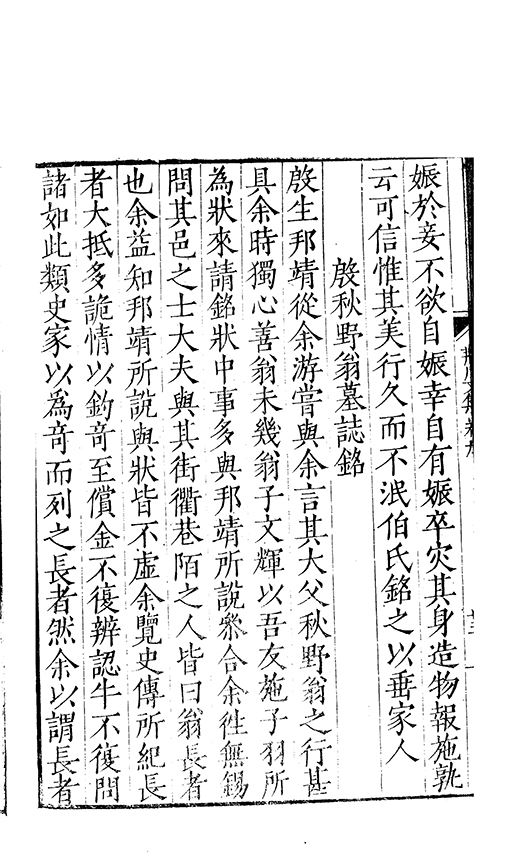 娠於妾不欲自娠幸自有娠卒灾其身造物報施孰
云可信惟其美行久而不泯伯氏銘之以垂家人
殷秋野翁墓誌銘
殷生邦靖從余游嘗與余言其大父秋野翁之行甚
具余時獨心善翁未幾翁子文輝以吾友施子羽所
為狀來請銘狀中事多與邦靖所說叅合余徃無錫
問其邑之士大夫與其街衢巷陌之人皆曰翁長者
也余益知邦靖所說與狀皆不虛余覽史傳所紀長
者大抵多詭情以釣奇至償金不復辨認牛不復問
諸如此類史家以爲奇而列之長者然余以謂長者